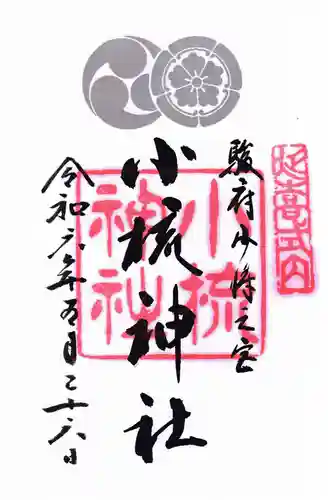 延喜式内
駿府少将之宮
小梳神社
小梳神社
令和六年五月二十六日